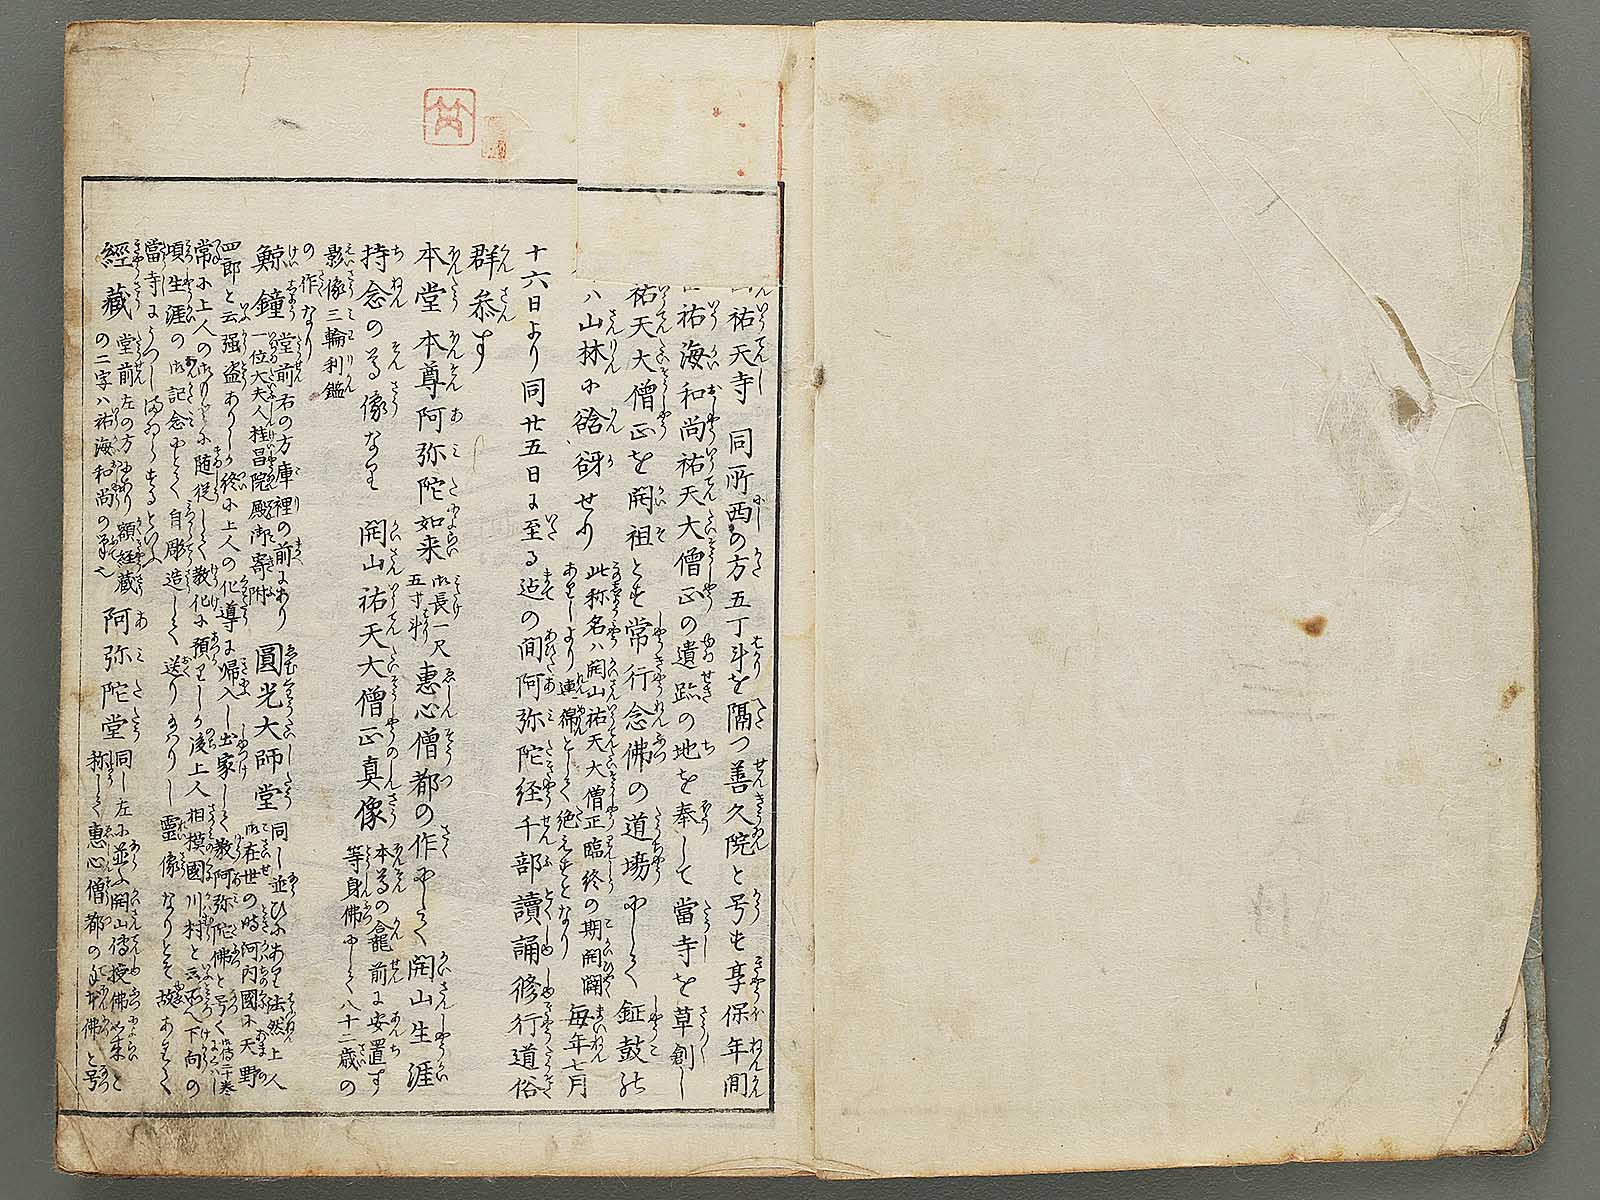 祐天寺 同所西の方五丁斗を隔つ善久院と号す享保年間
祐海和尚祐天大僧正の遺跡の地を奉して當寺を草創し
祐天大僧正を開祖とす常行念佛の道場にして鉦鼓の
ハ山林に谽谺せり 此称名ハ開山祐天大僧正臨終の期開闢
ありしより連綿として絶えすとなり 毎年七月
十六日より同廿五日に至る迠の間阿弥陀経千部讀誦修行道俗
群叅す
本堂 本尊阿弥陀如来 御長一尺
五寸斗 惠心僧都の作にして開山生涯
持念の尊像なり 開山祐天大僧正真像 本尊の龕前に安置す
等身佛にして八十二歳の
影像三輪利鑑
の作なり
鯨鐘 堂前右の方庫裡の前にあり
一位大夫人桂昌院殿御寄附 圓光大師堂 同し並ひにあり法然上人
御在世の時河内國に天野
四郎と云强盗ありしか終に上人の化導に帰入し出家して教阿弥陀佛と号く
常に上人の御もとに随従して教化に預りしか後上人相摸國川村と云所へ下向の
頃生涯の御記念にとて自彫造して送り給ハりし靈像なりとそ故ありて
當寺にうつしまゐらするといふ
經藏 堂前左の方にあり額経藏
の二字ハ祐海和尚の筆也 阿弥陀堂 同し左に並ふ開山傳授佛如来と
称して惠心僧都の佛と号